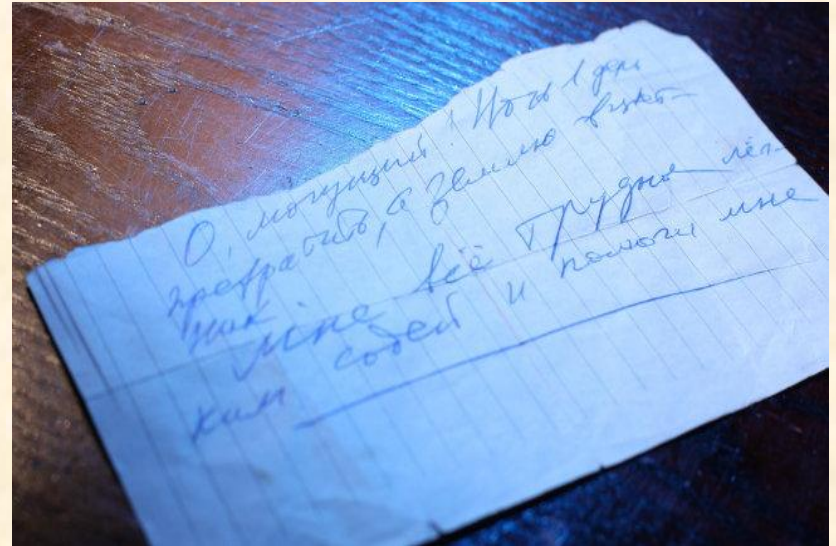 О, могущий! Ночь в день
превратить, а землю в цвет-
ник. Мне всё трудное лёг-
ким содей и помоги мне